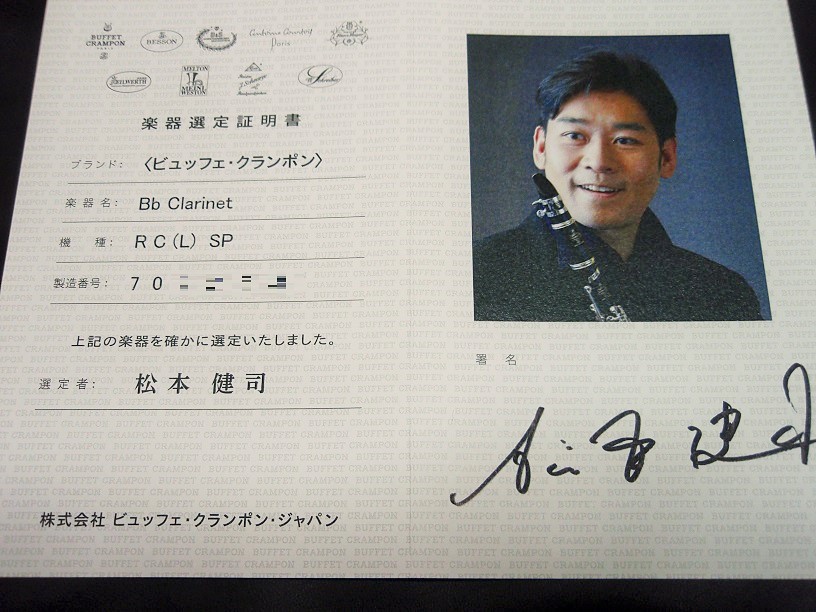 BUFFET
CRAMPON
PARIS
BESSON
Antoine Courtois
Paris
KEILWERTH
MELTON
MEINL
WESTON
J. Scherzer
楽器選定証明書
ブランド： 〈ビュッフェ・クランポン〉
楽器名： Bb Clarinet
機種： RC(L) SP
製造番号： 70
上記の楽器を確かに選定いたしました。
選定者： 松本 健司
株式会社 ビュッフェ・クランポン・ジャパン
署名
松本健司
BUFFET CRAMPON